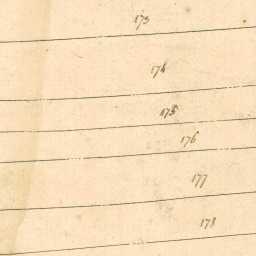 173
174
175
176
177
178